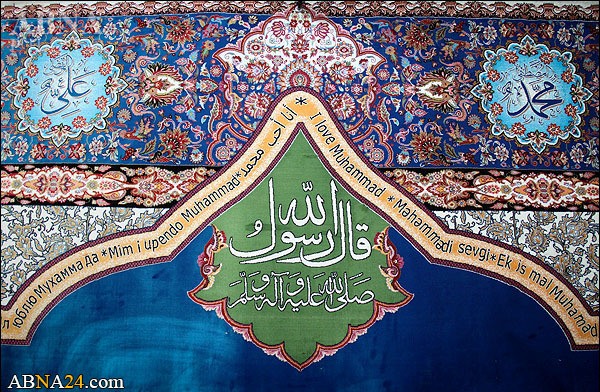 ABNA24.com
علي
محمد
л юблю Мухамма да *Mim i upendo Muhammad*انا أحب محمد * I love Muhammad *Mahammadi sevgi*Ek is mal Muhamad
قال رسول الله
صلى الله عليه وآله وسلم
ABNA24.com